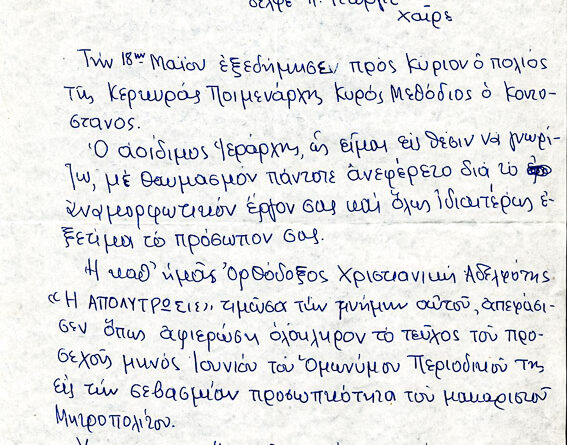 χαῖρε
Τήν 18ην Μαΐου ἐξεδήμησεν πρός Κύριον ὁ πολιός
τῆς Κερκυράς Ποιμενάρχης Κυρός Μεθόδιος ὁ Κοντο-
στανος.
Ὁ ἀοίδιμος Ἱεράρχης, ὡς εἶμαι εἰς θέσιν νά γνωρί-
ζω, μέ θαυμασμόν πάντοτε ἀνεφέρετο διά τό
ἀναμορφωτικόν ἔργον σας καί ὅλως ἰδιαιτέρως ἐ-
ξετίμα τό πρόσωπον σας.
Ἡ καθ' ἡμᾶς Ὀρθόδοξος Χριστιανική Ἀδελφότης
"Η ΑΠΟΛΥΤΡΩΣΙΣ", τιμῶσα τήν μνήμην αὐτοῦ, ἀπεφάσι-
σεν ὅπως ἀφιερώσῃ ὁλόκληρον τό τεῦχος τοῦ προ-
σεχοῦς μηνός Ἰουνίου τοῦ Ὁμωνύμου Περιοδικοῦ της
εἰς τήν σεβασμίαν προσωπικότητα τοῦ μακαριστοῦ
Μητροπολίτου.